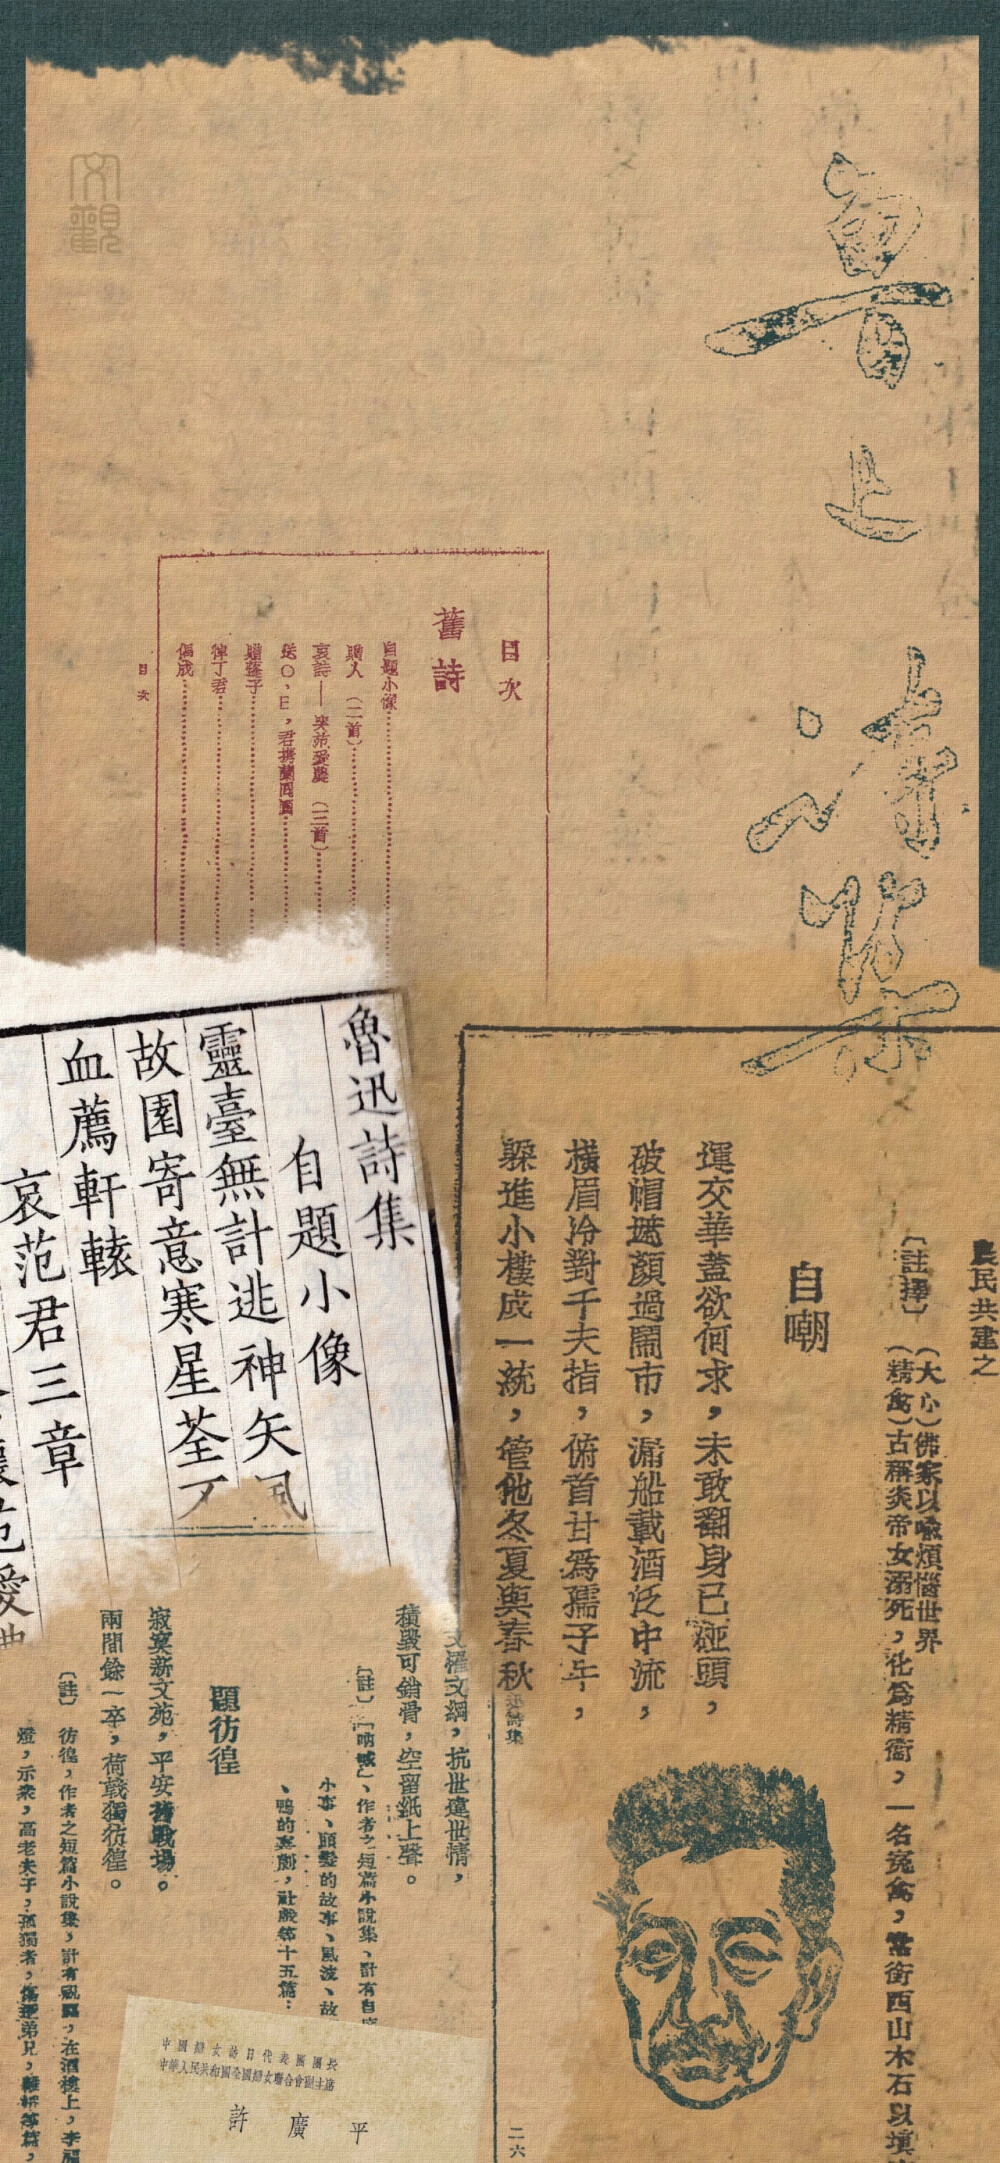 文觀
魯迅詩集
目次
舊詩
自題小像
贈人（二首）
哀詩——哭范愛農（三首）
送O．E．君携蘭回國
贈蓬子
悼丁君
偶成
目次
魯迅詩集
自題小像
靈臺無計逃神矢風
故園寄意寒星荃不
血薦軒轅
哀范君三章
范愛
農民共建之
〔註擇〕（大心）佛家以喻煩惱世界
（精禽）古稱炎帝女溺死，化爲精衞，一名冤禽，常銜西山木石以填
自嘲
運交華蓋欲何求，未敢翻身已碰頭，
破帽遮顏過鬧市，漏船載酒泛中流，
橫眉冷對千夫指，俯首甘爲孺子牛，
躱進小樓成一統，管他冬夏與春秋
詩集
二六
文權文網，抗世違世情，
積毀可銷骨，空留紙上聲。
〔註〕『吶喊』、作者之短篇小說集、計有自序
小事、頭髮的故事、風波、故
、鴨的喜劇，社戲等十五篇：
題彷徨
寂寞新文苑，平安舊戰場。
兩間餘一卒，荷戟獨彷徨。
〔註〕彷徨，作者之短篇小說集，計有祝福，在酒樓上，幸福
燈，示衆，高老夫子，孤獨者，傷逝弟兄，離婚等篇，
中國婦女訪日代表團團長
中華人民共和國全國婦女聯合會副主席
許廣平